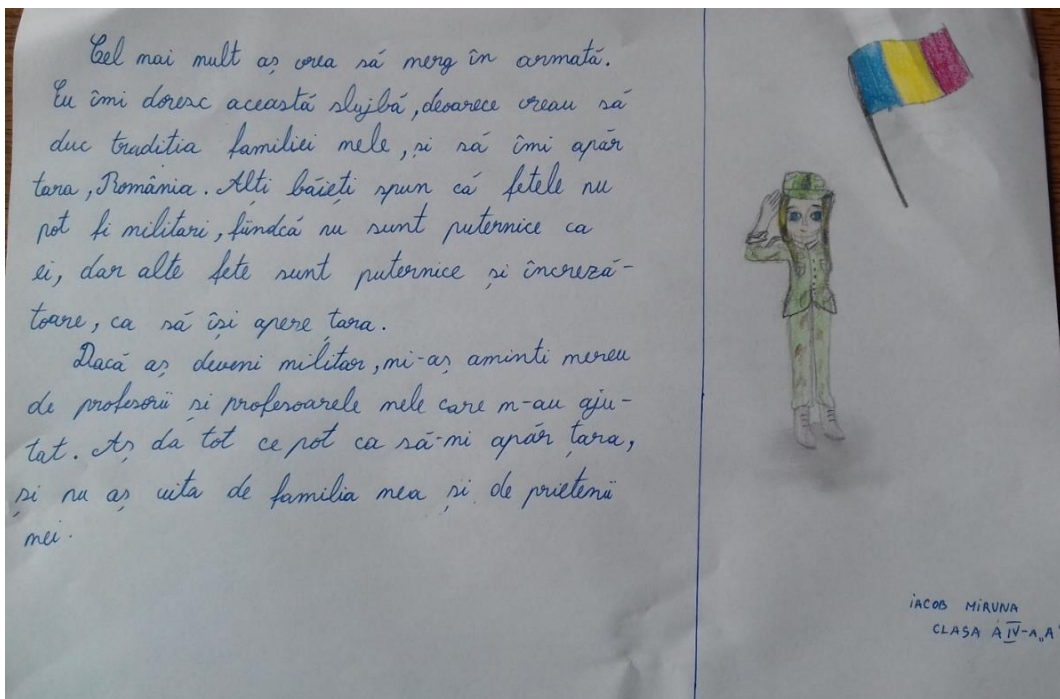 Cel mai mult aș vrea să merg în armată.
Eu îmi doresc această slujbă, deoarece vreau să
duc traditia familiei mele, si să îmi apăr
tara, România. Alți băieți spun că fetele nu
pot fi militari, fiindcă nu sunt puternice ca
ei, dar alte fete sunt puternice și încreză-
toare, ca să își apere țara.
Dacă aș deveni militar, mi-aș aminti mereu
de profesorii si profesoarele mele care m-au aju-
tat. Aș da tot ce pot ca să-mi apăr țara,
și nu aș uita de familia mea și de prietenii
mei.
IACOB MIRUNA
CLASA A IV-A „A"